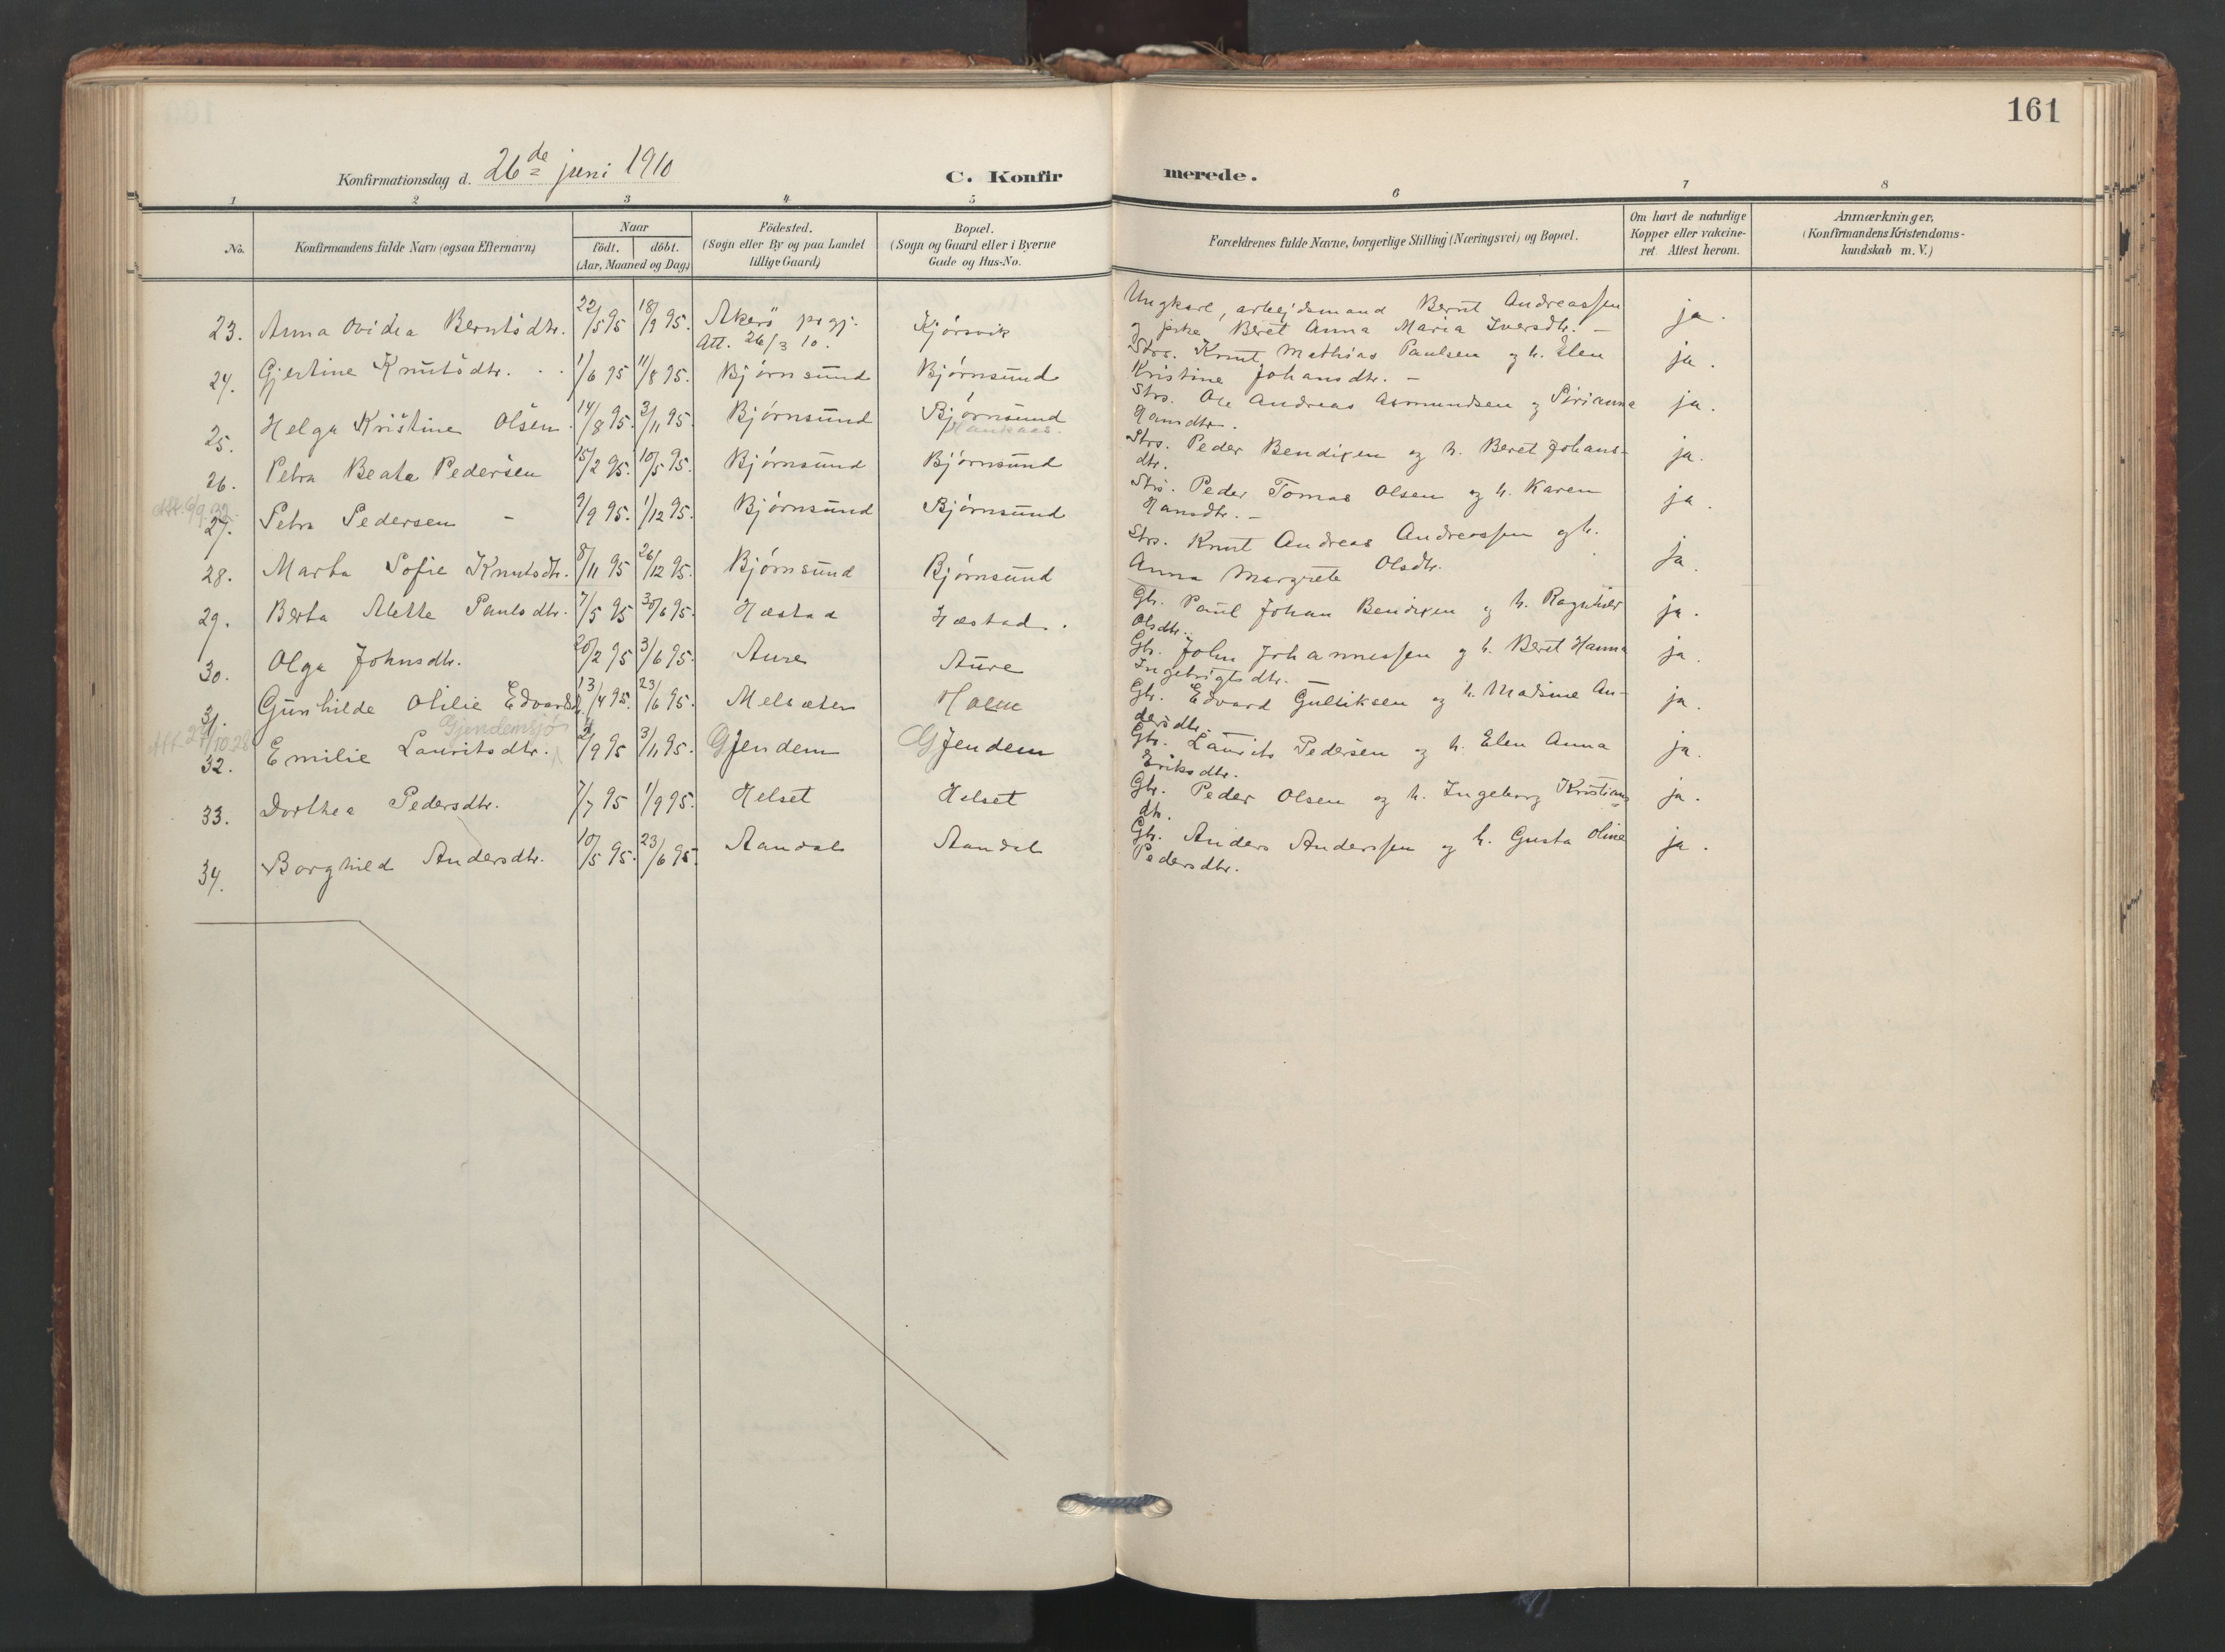 161
Konfirmationsdag d. 26de juni 1910
C. Konfirmerede.
1 2 3 4 5 6 7 8
No. Konfirmandens fulde Navn (ogsaa Efternavn) Naar födt. döbt. (Aar, Maaned og Dag) Födested. (Sogn eller By og paa Landet tillige Gaard) Bopæl. (Sogn og Gaard eller i Byerne Gade og Hus-No. Forældrenes fulde Navne, borgerlige Stilling (Næringsvei) og Bopæl. Om havt de naturlige Kopper eller vakcineret. Attest herom. Anmærkninger, (Konfirmandens Kristendomskundskab m. V.)
23. Anna Ovidia Berntsdtr. 22/5 95 18/9 95. Akerö prgj. Kjörsvik Ungkarl, arbejdsmand Bernt Andreassen ja.
Att. 26/3 10. og pike Beret Anna Maria Iversdtr. –
24. Gjertine Knutsdtr. 1/6 95 11/8 95. Björnsund Björnsund Strs. Knut Mathias Paulsen og h. Elen ja.
Kristine Johansdtr. –
25. Helga Kristine Olsen 14/8 95. 3/11 95. Björnsund Björnsund Strs. Ole Andreas Asmundsen og Sirianna ja.
Haukaas.
Hansdtr.
26. Petra Beata Pedersen 15/2 95. 10/5 95. Björnsund Björnsund Strs. Peder Bendixen og h. Beret Johans- ja.
dtr.
Att. 6/9 32.
27. Petra Pedersen – 9/9 95. 1/12 95. Björnsund Björnsund Strs. Peder Tomas Olsen og h. Karen ja.
Hansdtr. –
28. Marta Sofie Knutsdtr. 8/11 95 26/12 95. Björnsund Björnsund Strs. Knut Andreas Andreassen og h. ja.
Anna Margrete Olsdtr.
29. Berta Alette Paulsdtr. 7/5 95 30/6 95. Hæstad Hæstad. Gbr. Paul Johan Bendixen og h. Ragnhild ja.
Olsdtr.
30. Olga Johnsdtr. 20/2 95 3/6 95. Aure Aure Gbr. John Johannessen og h. Beret Hanna ja.
Ingebrigtsdtr. –
31. Gunhilde Otilie Edvardsd. 13/4 95. 23/6 95. Melsæter Holm Gbr. Edvard Gulliksen og h. Madsine An- ja.
dersdtr. –
Gjendemsjö
32. Emilie Lauritsdtr. 2/9 95 3/11 95. Gjendem Gjendem Gbr. Laurits Pedersen og h. Elen Anna ja.
Eriksdtr.
33. Dorthea Pedersdtr. 7/7 95 1/9 95. Helset Helset Gbr. Peder Olsen og h. Ingeborg Kristians ja.
dtr.
34. Borghild Andersdtr. 10/5 95. 23/6 95. Aandal Aandal Gbr. Anders Anderssen og h. Gusta Oline ja.
Pedersdtr.